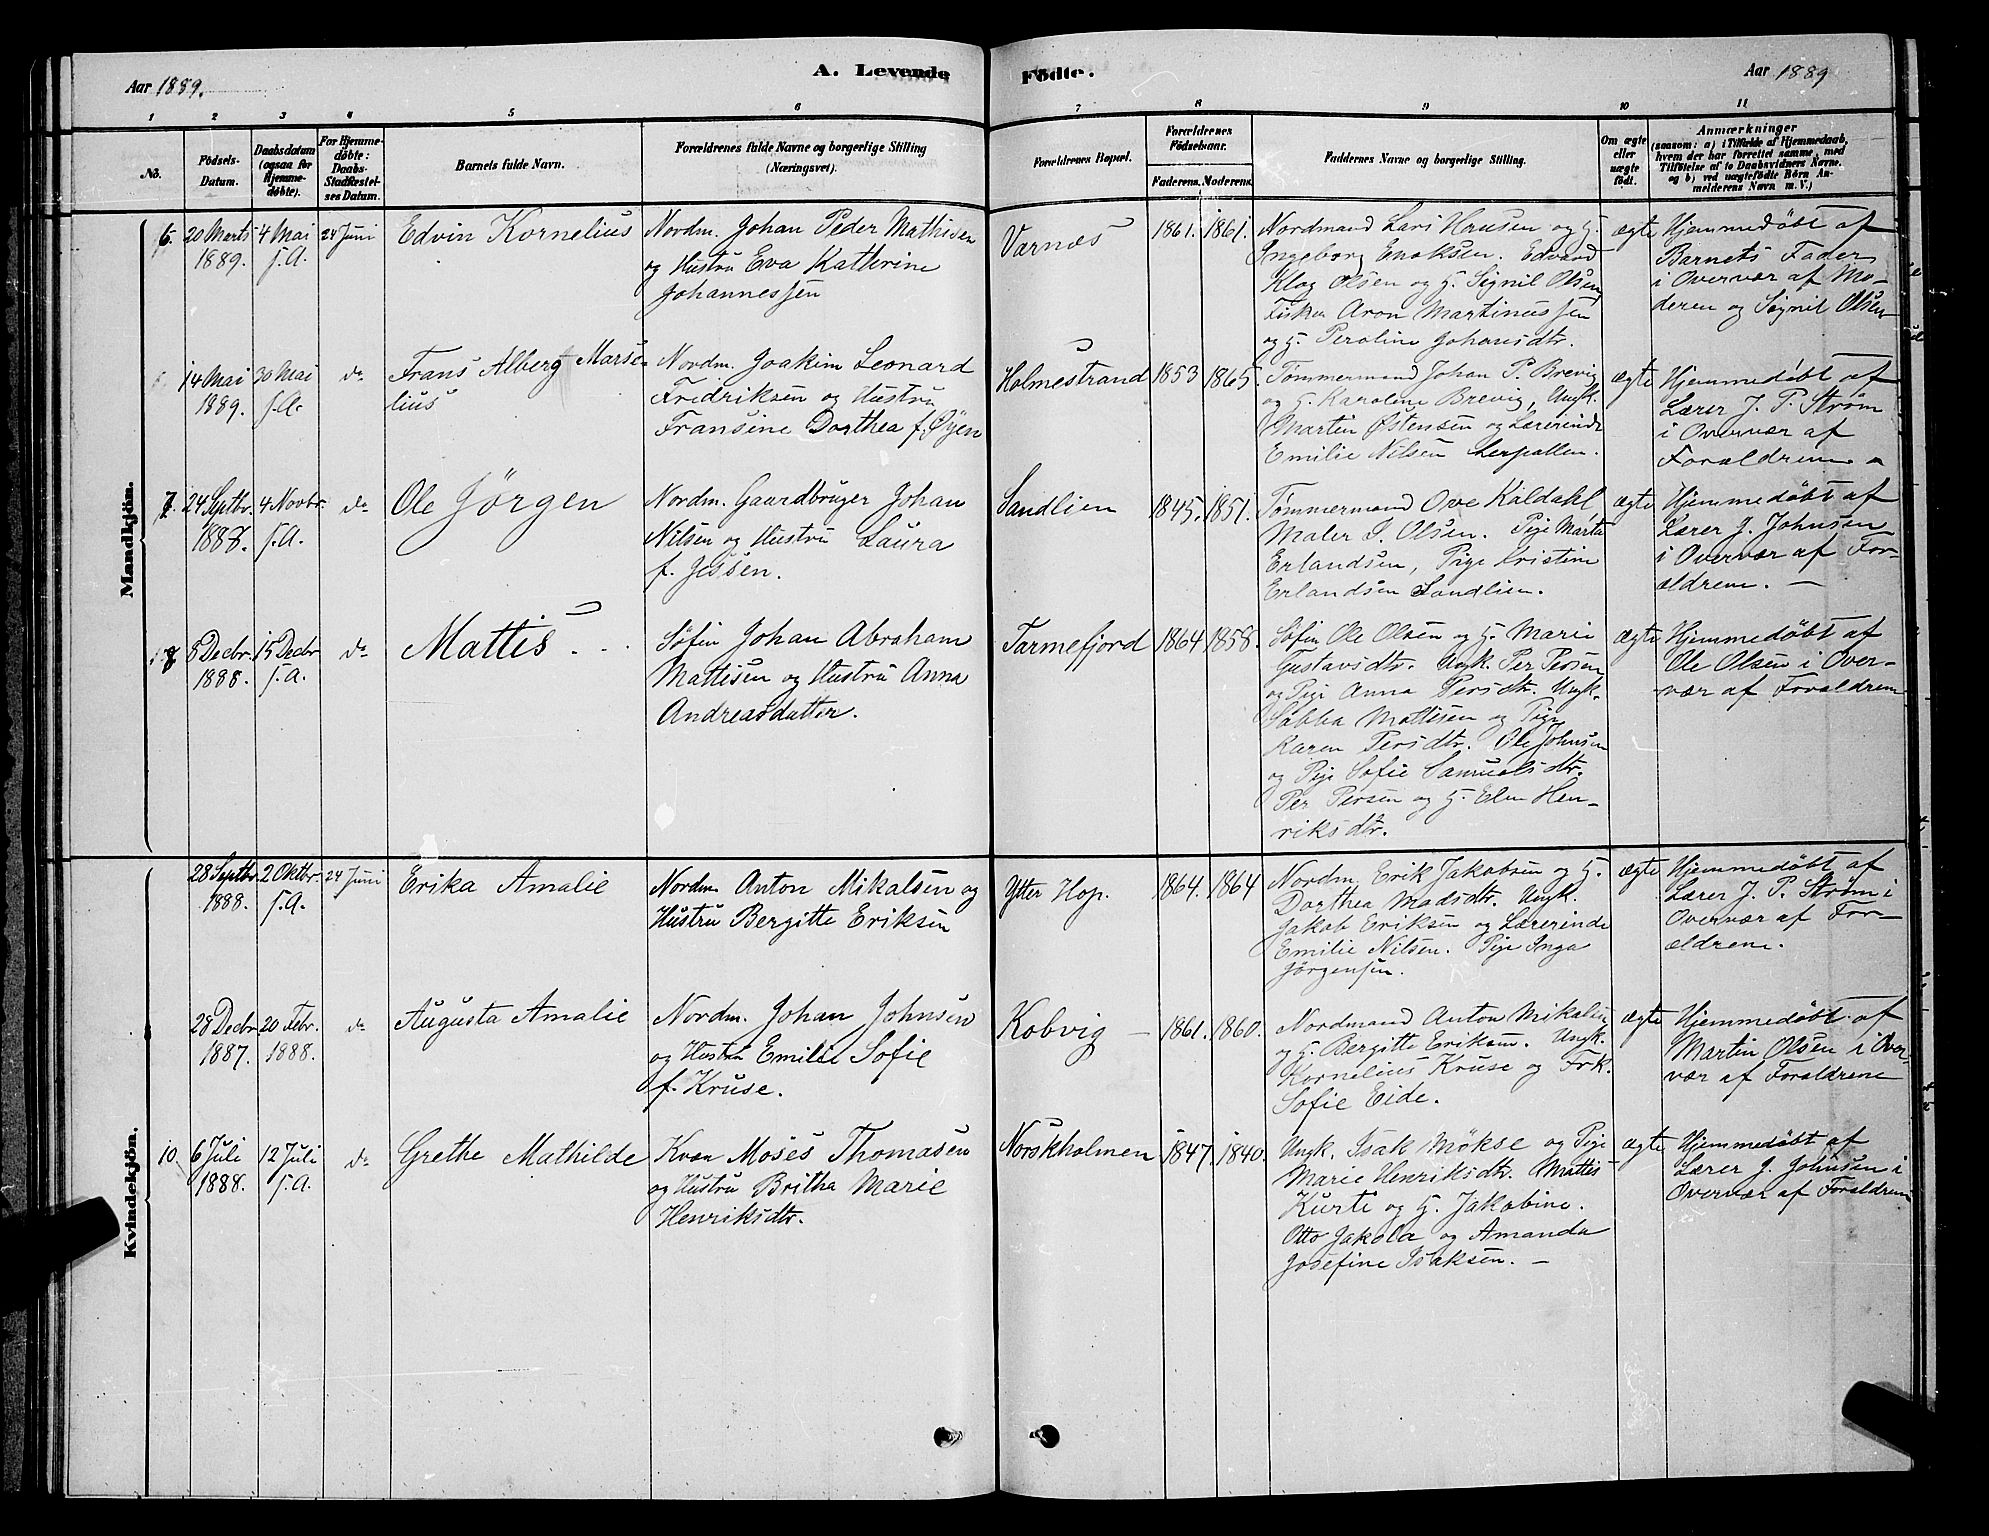 Aar 1889.
A. Levende Födte.
Aar 1889
1 2 3 4 5 6 7 8 9 10 11
No.
Födsels-
Datum.
Daabsdatum
(ogsaa for
Hjemme-
döbte).
For Hjemme-
döbte:
Daabs-
Stadfæstel-
ses Datum.
Barnets fulde Navn.
Forældrenes fulde Navne og borgerlige Stilling
(Næringsvei).
Forældrenes Bopæl.
Forældrenes
Födselsaar.
Faderens. Moderens.
Faddernes Navne og borgerlige Stilling.
Om ægte
eller
uægte
födt.
Anmærkninger
(saasom: a) i Tilfælde af Hjemmedaab,
hvem der har forrettet samme, med
Tilföielse af to Daabsvidners Navne,
og b) ved uægtefödte Börn An-
melderens Navn m. V.)
Mandkjön.
6.
20 Marts
1889.
4 Mai
s.A.
24 Juni
Edvin Kornelius
Nordm. Johan Peder Mathisen
og Hustru Eva Katherine
Johannessen
Varnæs
1861. 1861.
Nordmand Lars Hansen og H.
Ingeborg Enoksen. Edvard
Klog Olsen og H. Signil Olsen
Fisker Aron Martinussen
og H. Peroline Johansdtr.
ægte
Hjemmedøbt af
Barnets Fader
i Overvær af Mo-
deren og Signil Olsen
14 Mai
1889.
30 Mai
s.A.
do
Frans Alberg Marse-
lius
Nordm. Joakim Leonard
Fredriksen og Hustru
Fransine Dorthea f. Øyen
Holmestrand
1853 1865.
Tømmermand Johan P. Brevig
og H. Karoline Brevig, Ungk.
Martin Østensen og Lærerinde
Emilie Nilsen Lerpollen.
ægte
Hjemmedøbt af
Lærer J. P. Strøm
i Overvær af
Forældrene
7.
24 Septbr.
1888.
4 Novbr.
s.A.
do
Ole Jörgen
Nordm. Gaardbruger Johan
Nilsen og Hustru Laura
f. Jessen.
Sandlien
1845. 1851.
Tømmermand Ove Kaldahl
Maler I. Olsen. Pige Marta
Erlandsen, Pige Kristine
Erlandsen Sandlien.
ægte
Hjemmedøbt af
Lærer J. Johnsen
i Overvær af For-
ældrene. —
8
8 Decbr.
1888.
15 Decbr
s.A.
do
Mattis
Søfin Johan Abraham
Mattisen og Hustru Anna
Andreasdatter.
Tarmefjord
1864 1858.
Søfin Ole Olsen og H. Marie
Gustavsdtr. Ungk. Per Persen
og Pige Anna Persdtr. Ungk.
Sabba Mattisen og Pige
Karen Persdtr. Ole Johnsen
og Pige Sofie Samuelsdtr.
Per Persen og H. Elen Hen-
riksdtr.
ægte
Hjemmedøbt af
Ole Olsen i Over-
vær af Forældrene
Kvindekjön.
28 Septbr.
1888.
2 Oktbr.
s.A.
24 Juni
Erika Amalie
Nordm. Anton Mikalsen og
Hustru Bergitte Eriksen
Ytter Hop.
1864. 1864
Nordm. Erik Jakobsen og H.
Dorthea Madsdtr. Ungk.
Jakob Eriksen og Lærerinde
Emilie Nilsen. Pige Inga
Jörgensen.
ægte
Hjemmedøbt af
Lærer J. P. Strøm i
Overvær af For-
ældrene.
28 Decbr.
1887.
20 Febr.
1888.
do
Augusta Amalie
Nordm. Johan Johnsen
og Hustru Emilie Sofie
f. Kruse.
Kobvig —
1861. 1860.
Nordmand Anton Mikalsen
og H. Bergitte Eriksen. Ungk.
Kornelius Kruse og Frk.
Sofie Eide.
ægte
Hjemmedøbt af
Martin Olsen i Over-
vær af Forældrene
10
6 Juli
1888.
12 Juli
s.A.
do
Grethe Mathilde
Kvæn Moses Thomasen
og Hustru Britha Marie
Henriksdtr.
Norskholmen
1847. 1840.
Ungk. Isak Mökse og Pige
Marie Henriksdtr. Mattis
Kurte og H. Jakobine.
Otto Jakola og Amanda
Josefine Isaksen. —
ægte
Hjemmedøbt af
Lærer J. Johnsen i
Overvær af Forældrene